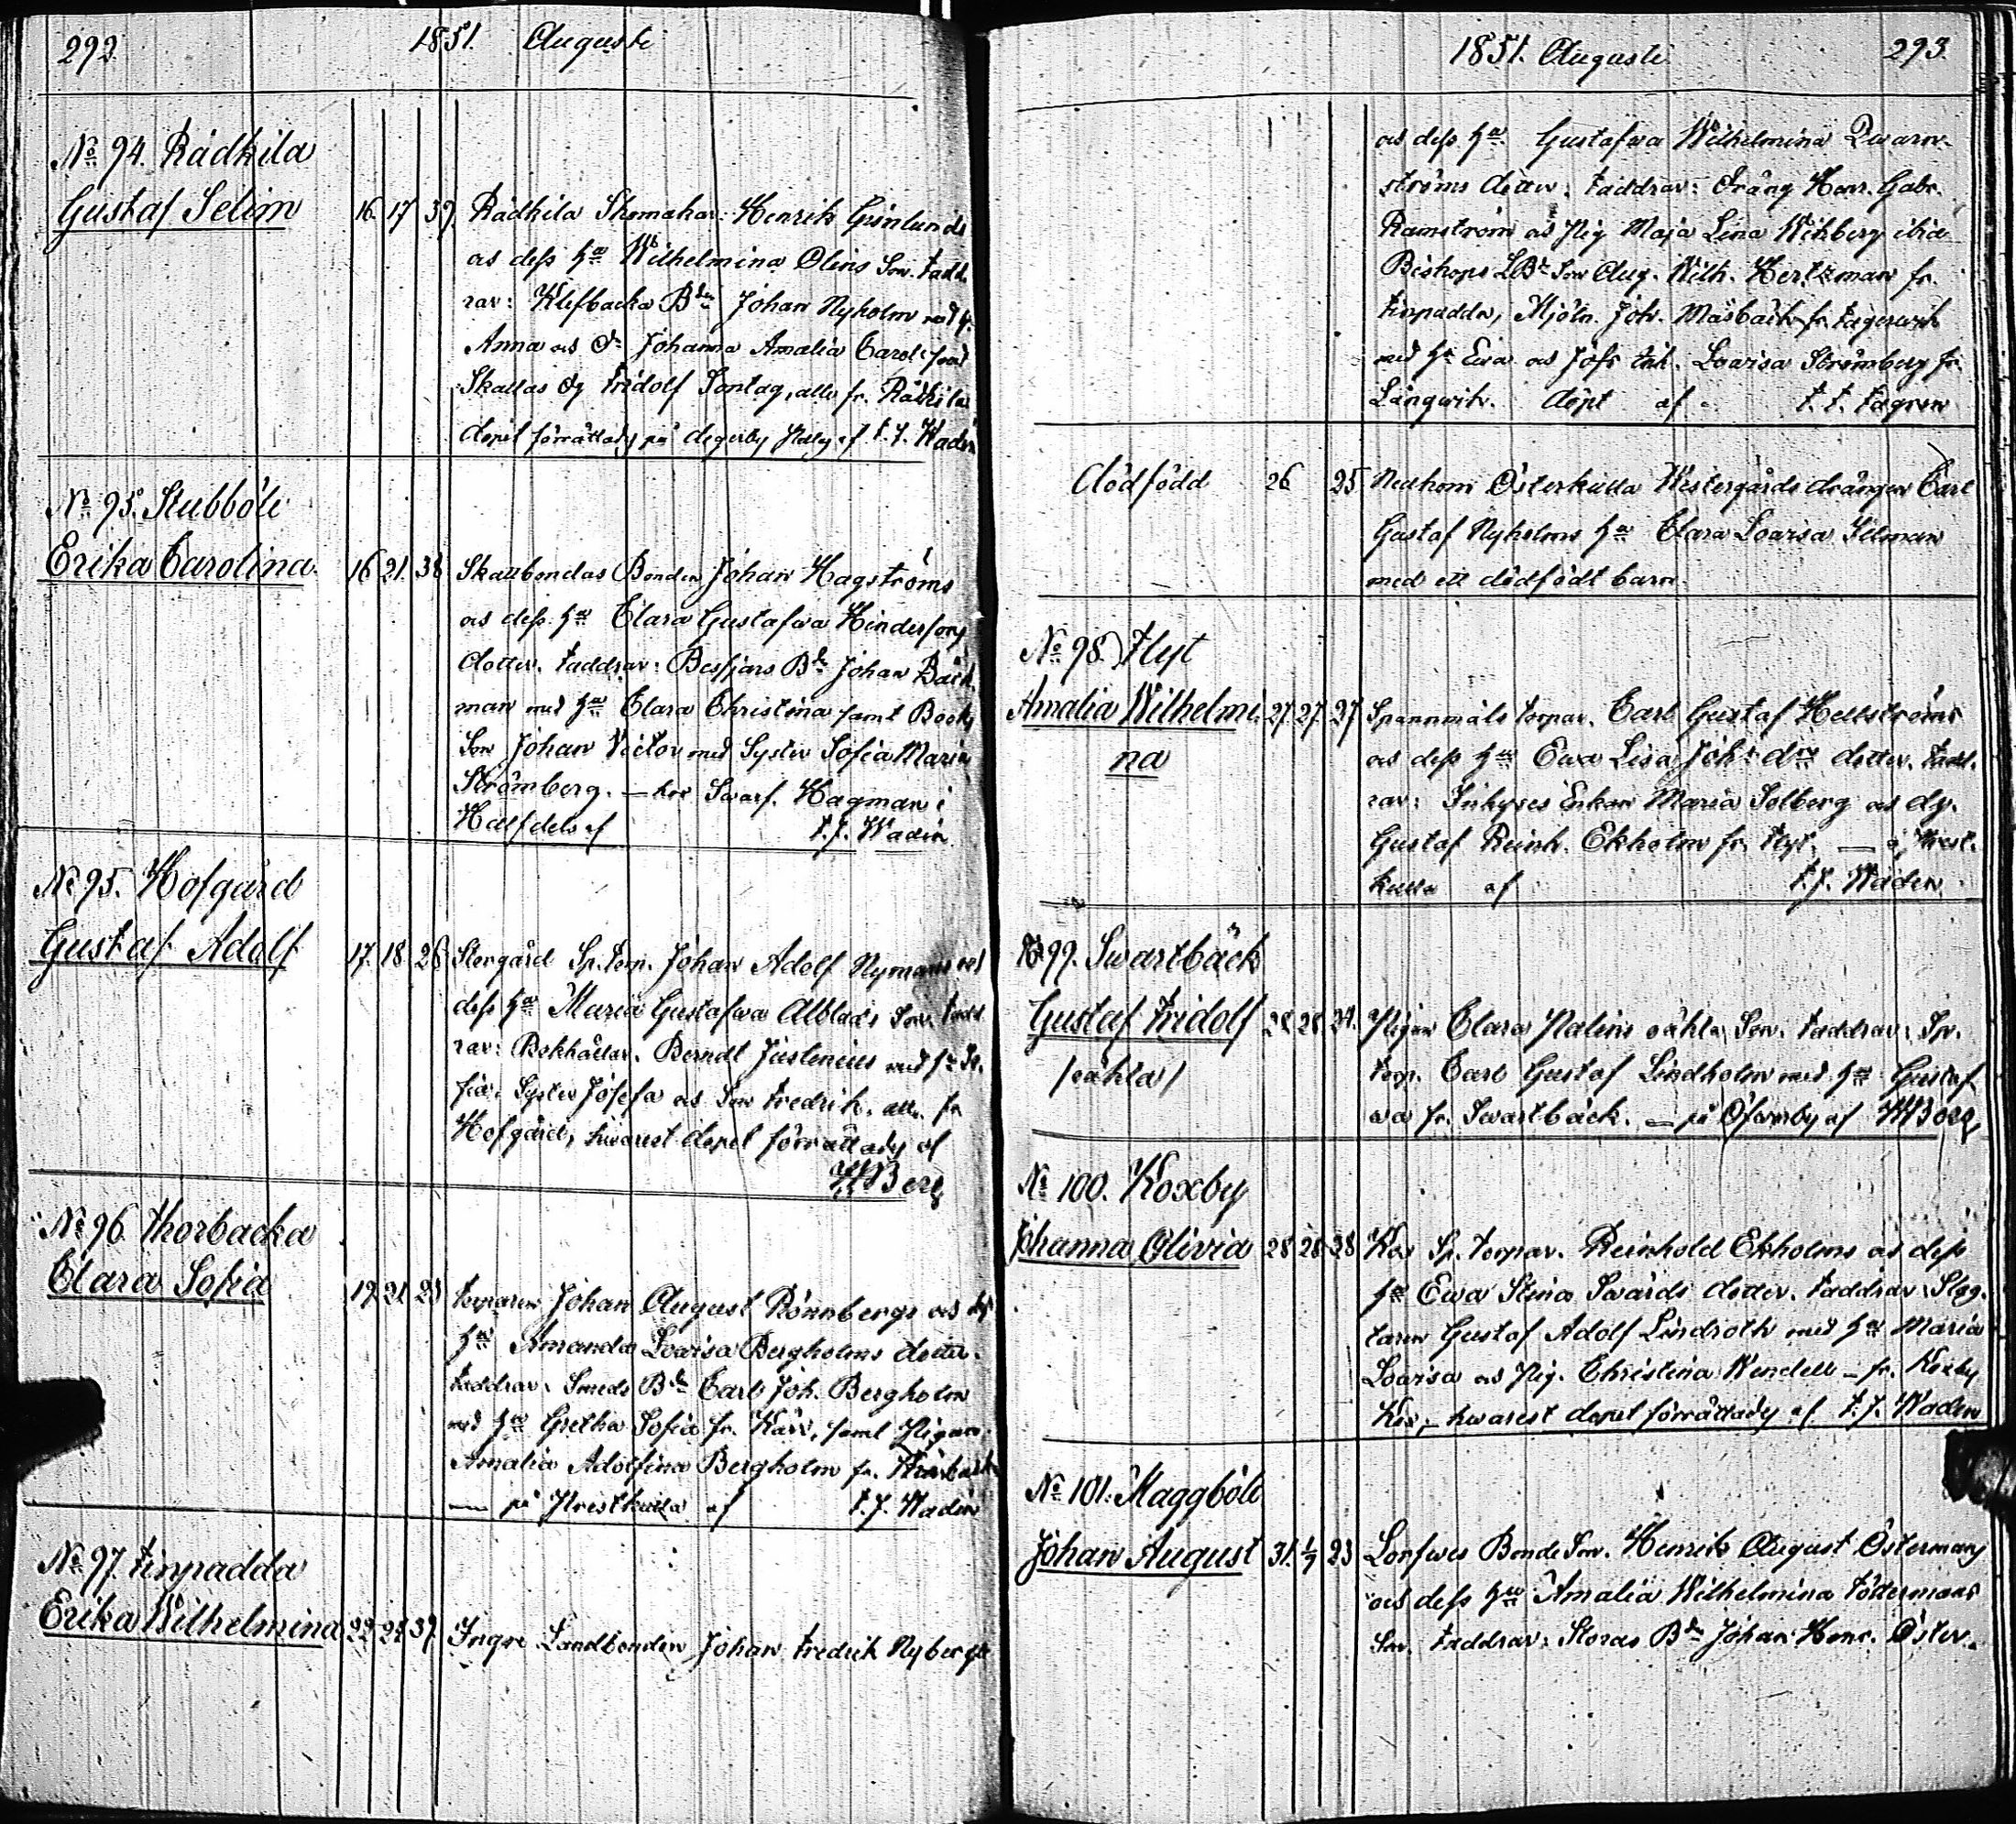 292. 1851. Augusti
No 94. Rådkila
Gustaf Selim 16. 17 39. Rådkila Skomakar. Henrik Grönlunds
os dess hu Wilhelmina Olins Son. Fadd-
rar: Klefbacka Bdn Johan Nyholm med h.
Anna os Dr Johanna Amalia Carol.
Skallas Dg Fridolf Sontag, alla fr. Rådkila
dopet förrättady på Degerby af F. J. Wadén
No 95. Stubböle
Erika Carolina. 16 21. 38 Skattbondas Bonden Johan Hagströms
os dess hu Clara Gustafwa Hindersons
dotter. Faddrar: Besjärs Bdn Johan Bäck-
man med hu Clara Christina samt Books
Son Johan Victor med Syster Sofia Maria
Strömberg. — hos Swarf. Hagman i
Halfdels af F. J. Wadén.
No 95. Hofgård
Gustaf Adolf 17. 18 26 Storgård Sp. Torp. Johan Adolf Nymans os
dess hu Maria Gustafwa Alblads Son. Fadd-
rar: Bokhållar. Berndt Justenius med hu So-
fia, Syster Josefa os Son Fredrik, alla fr.
Hofgård, hwarest dopet förrättady af
HBerg
No 96. Thorbacka
Clara Sofia 19. 21. 23 Torparen Johan August Rönnbergs os dess
hu Amanda Lovisa Bergholms dotter.
Faddrar: Smeds Bdn Carl Joh. Bergholm
med hu Gretha Sofia fr. Kärr, samt Pigan
Amalia Adolfina Bergholm fr. Thorbacka
— på Prestkulla af F. J. Wadén
No 97. Finpadda
Erika Wilhelmina 22. 24 37. Ingre Landbonden Johan Fredrik Nybergs
1851. Augusti 293.
os dess hu Gustafwa Wilhelmina Qwarn-
ströms dotter. Faddrar: Dräng Henr. Gabr.
Ramström os Pig Maja Lina Wikberg ibid.
Biskops LBdn Son Aug. Wilh. Hertzman fr.
Finpadda, Mjöln. Joh. Masbäck fr. Fagerwik
med hu Ewa os Jofr Lovisa Strömberg fr.
Långwik. Döpt af F. F. Fagren
Dödfödd 26 25 Nedhom Österkulla Westergårds drängen Carl
Gustaf Nyholms hu Clara Lovisa Silman
med ett dödfödt barn.
No 98. Flyt
Amalia Wilhelmi- 27. 27. 27 Spannmåls torpar. Carl Gustaf Hellströms
na os dess hu Ewa Lisa Johsdrs dotter. Fadd-
rar: Inhyses Enkan Maria Solberg os dg.
Gustaf Reinh. Ekholm fr. Flyt. — å Prest-
kulla af F. J. Wadén.
No 99. Swartbäck
Gustaf Fridolf 28. 28. 24. Pigan Clara Malins oäkta Son. Faddrar: Sp.
/oäkta/ torp. Carl Gustaf Lindholm med hu Gustaf-
wa fr. Swartbäck. — på Öfwerby af HBerg
No 100. Koxby
Johanna Olivia 28. 28. 28 Kox Sp. torpar. Reinhold Ekholms os dess
hu Ewa Stina Swärds dotter. Faddrar: Slag-
taren Gustaf Adolf Lindroth med hu Maria
Lovisa os Pig. Christina Wendell — fr. Koxby
Kox, — hwarest dopet förrättady af F. J. Wadén
No 101. Maggböle
Johan August 31. 1/9 23 Bonde Son. Henrik August Östermans
os dess hu Amalia Wilhelmina Födermans
Son. Faddrar: Storas Bdn Johan Henr. Öster-